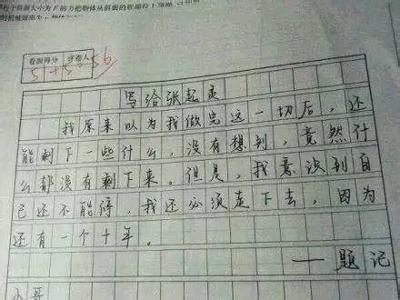 卷面得分 评卷人
51+5=56
写给张起灵
我原来以为我做完这一切后，还
能剩下一些什么，没有想到，竟然什
么都没有剩下来。但是，我意识到自
己还不能停，我还必须走下去，因为
还有一个十年。
——题记
小哥